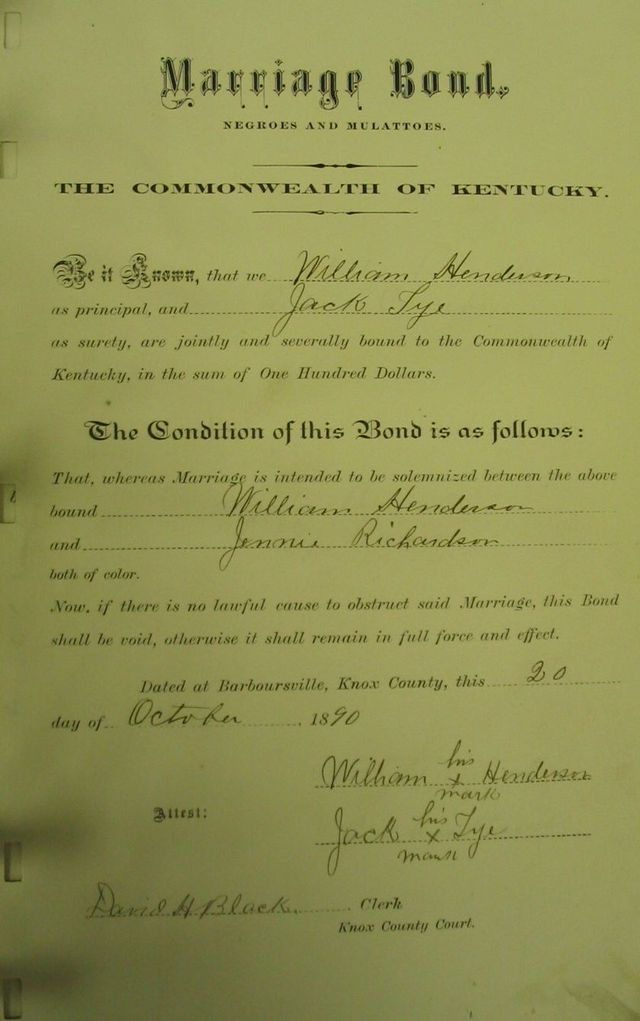 Marriage Bond.
NEGROES AND MULATTOES.
THE COMMONWEALTH OF KENTUCKY.
Be it Known, that we William Henderson
as principal, and Jack Tye
as surety, are jointly and severally bound to the Commonwealth of
Kentucky, in the sum of One Hundred Dollars.
The Condition of this Bond is as follows:
That, whereas Marriage is intended to be solemnized between the above
bound William Henderson
and Jennie Richardson
both of color.
Now, if there is no lawful cause to obstruct said Marriage, this Bond
shall be void, otherwise it shall remain in full force and effect.
Dated at Barboursville, Knox County, this 20
day of October, 1890
William his x mark Henderson
Attest:
Jack his x mark Tye
David H Black. Clerk
Knox County Court.